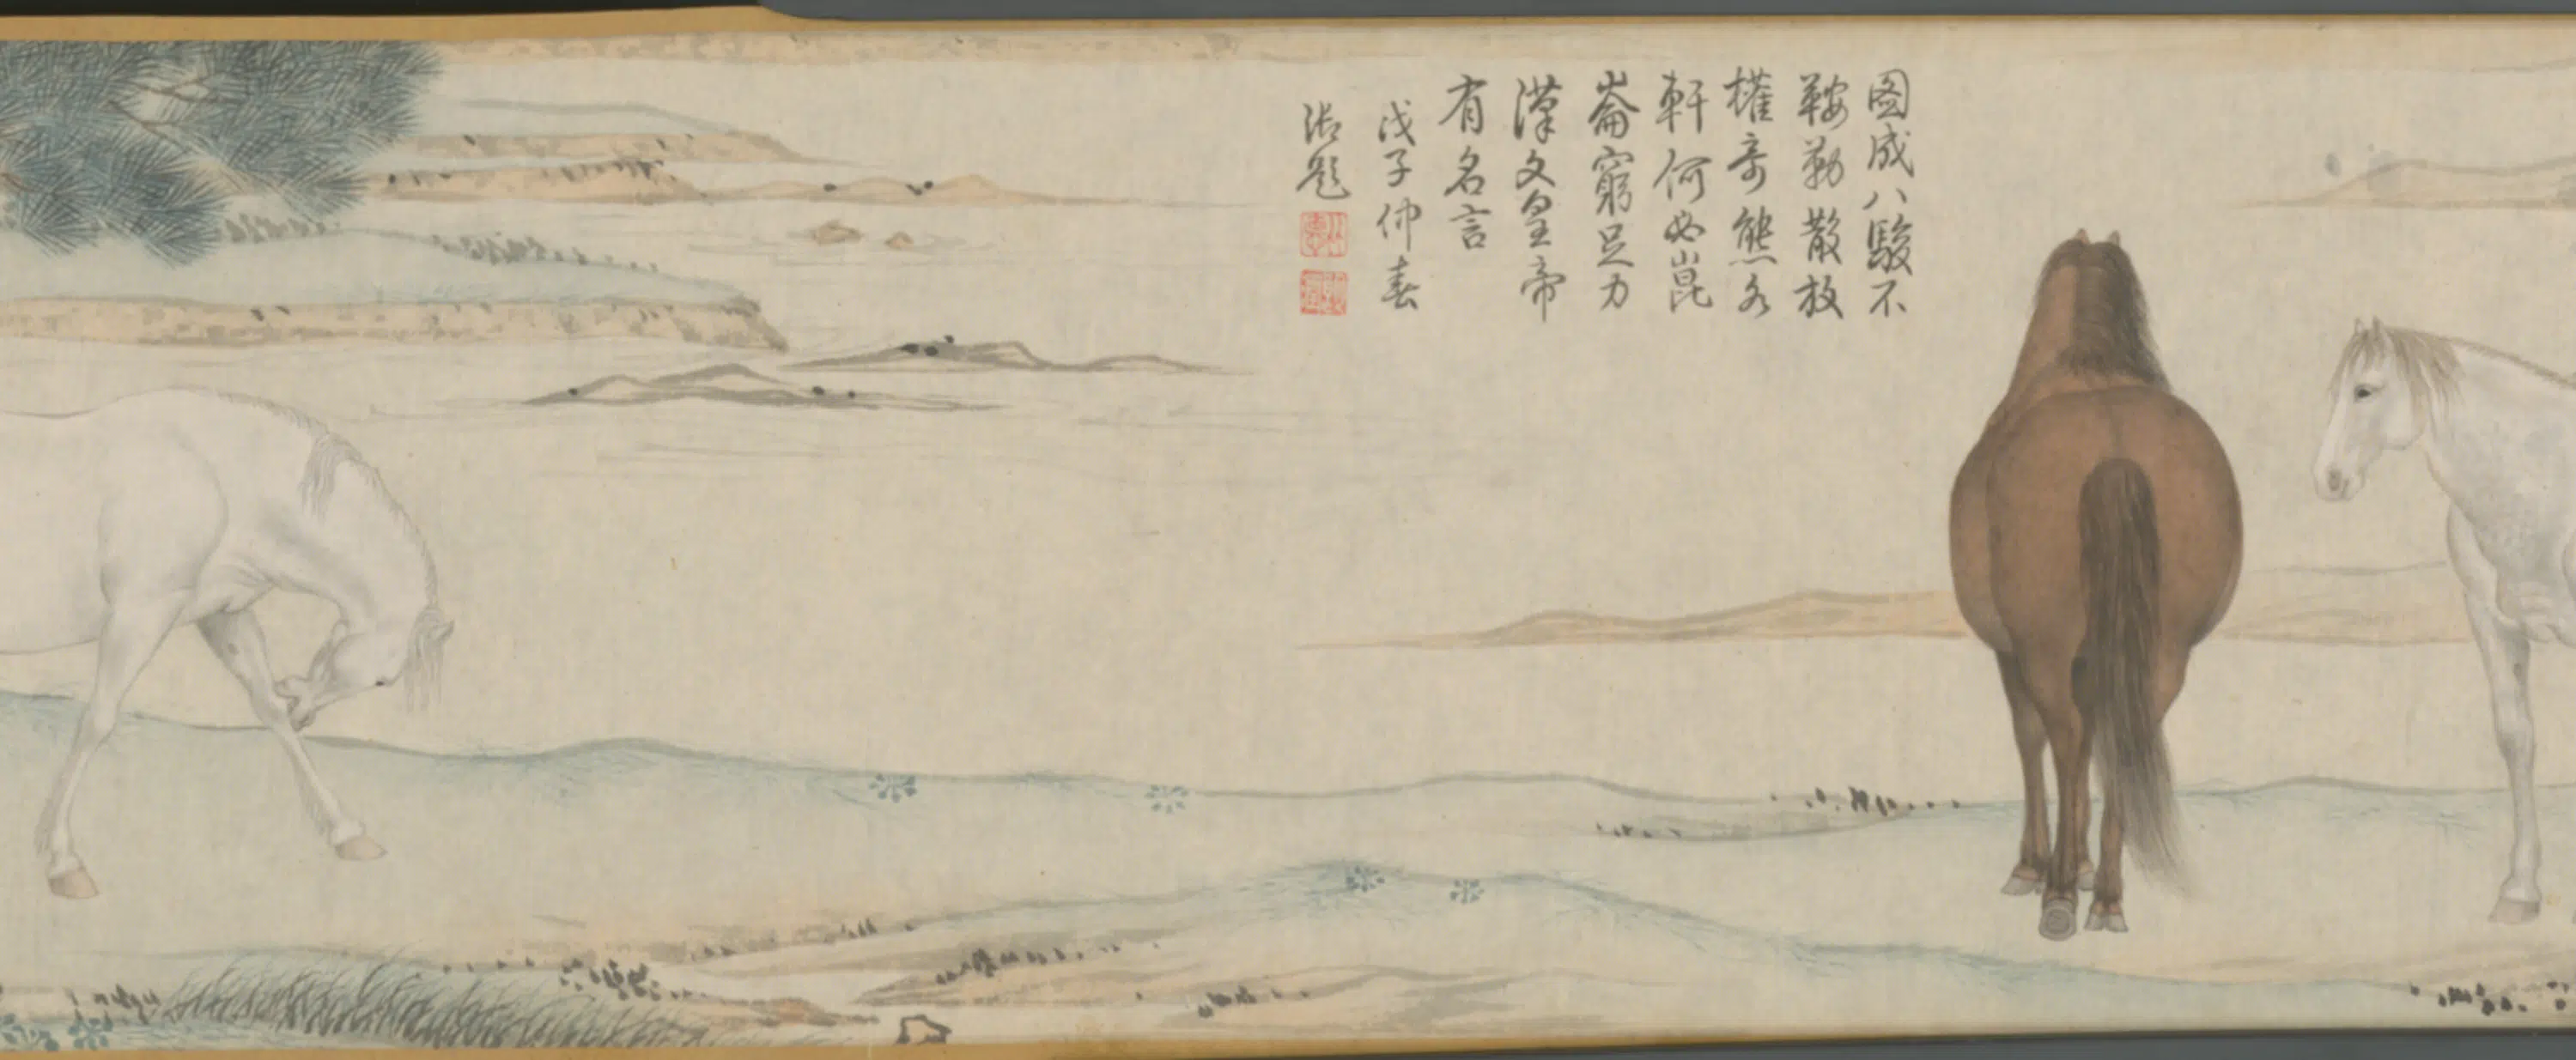 圖成八駿不
鞍勒散放
權奇態各
軒何必崑
崙窮足力
漢文皇帝
有名言
戊子仲春
御題